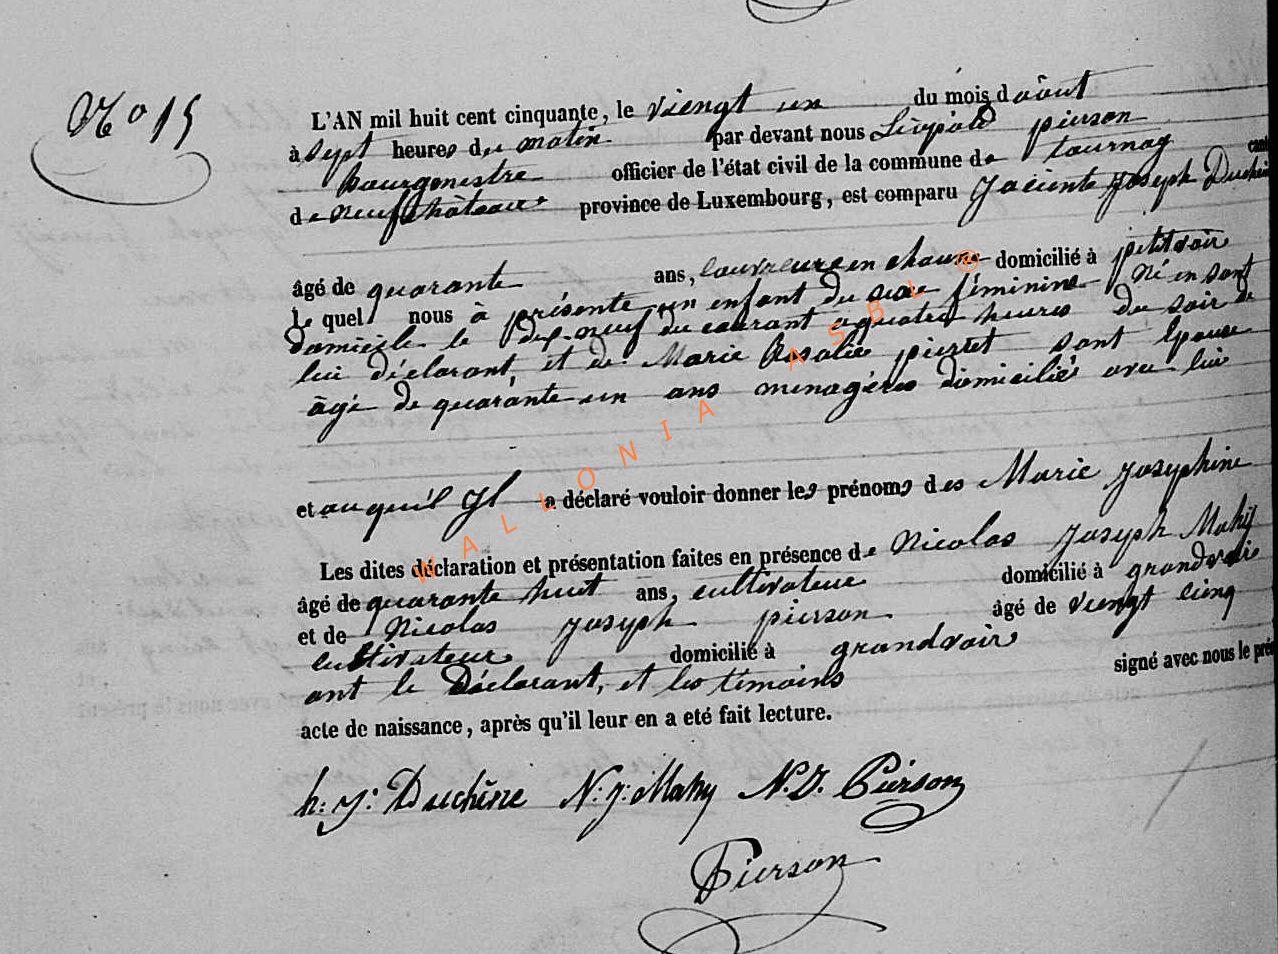 No 15
L'AN mil huit cent cinquante, le viengt un du mois d août
à sept heures du matin par devant nous Léopold pierson
bourgmestre officier de l'état civil de la commune de tournay
de neufchâteau province de Luxembourg, est comparu Jacinte Joseph Duchêne
âgé de quarante ans, couvreure en chaume domicilié à petitvoir
le quel nous à présente un enfant du sexe féminine Né en sont
domicile le dix-neuf du courant a quatre heures du soir de
lui déclarant, et de Marie Rosalie pierret sont épouse
âgé de quarante un ans menagères domiciliés avec lui
et au quel il a déclaré vouloir donner les prénoms des Marie Josephine
Les dites déclaration et présentation faites en présence de Nicolas Joseph Mahy
âgé de quarante huit ans, cultivateur domicilié à grandvoir
et de Nicolas Joseph pierson âgé de viengt cinq
cultivateur domicilié à grandvoir
ont le Déclarant, et les témoins signé avec nous le
acte de naissance, après qu'il leur en a eté fait lecture.
h: J: Duchêne N: J: Mahy N. J. Pierson
Pierson
WALLONIA ASBL ®